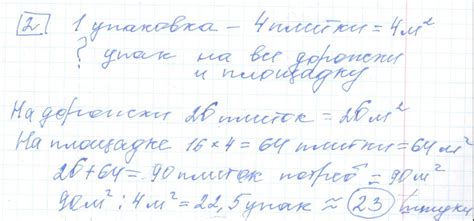 2 1 упаковка – 4 плитки = 4 м²
? упак на все дорожки
и площадку
На дорожки 26 плиток = 26 м²
На площадке 16 × 4 = 64 плитки = 64 м²
26 + 64 = 90 плиток потреб = 90 м²
90 м² : 4 м² = 22,5 упак ≈ 23